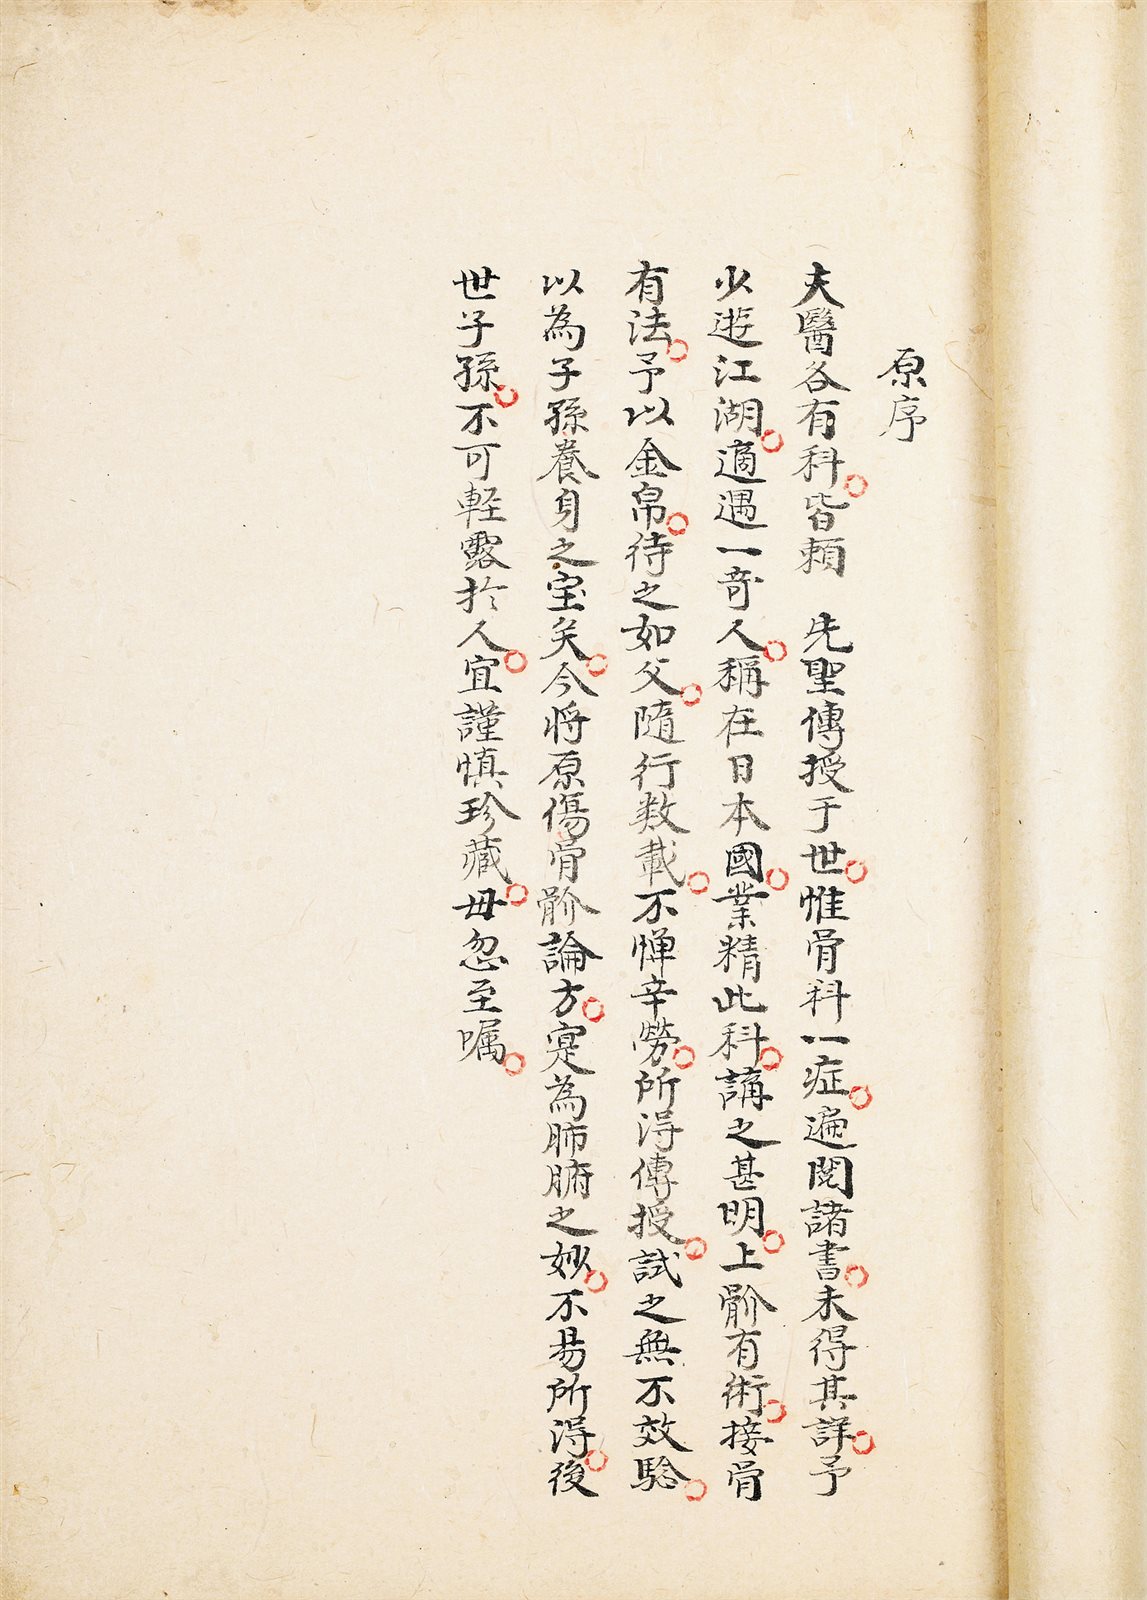 原序
夫醫各有科。皆賴　先聖傳授于世。惟骨科一症。遍閱諸書。未得其詳。予
少遊江湖。適遇一奇人。稱在日本國。業精此科。講之甚明。上骱有術。接骨
有法。予以金帛。待之如父。隨行数載。不憚辛勞。所得傳授。試之無不效驗。
以為子孫養身之宝矣。今将原傷骨骱論方。寔為肺腑之妙。不易所得。後
世子孫。不可軽露於人。宜謹慎珍藏。毋忽至嘱。